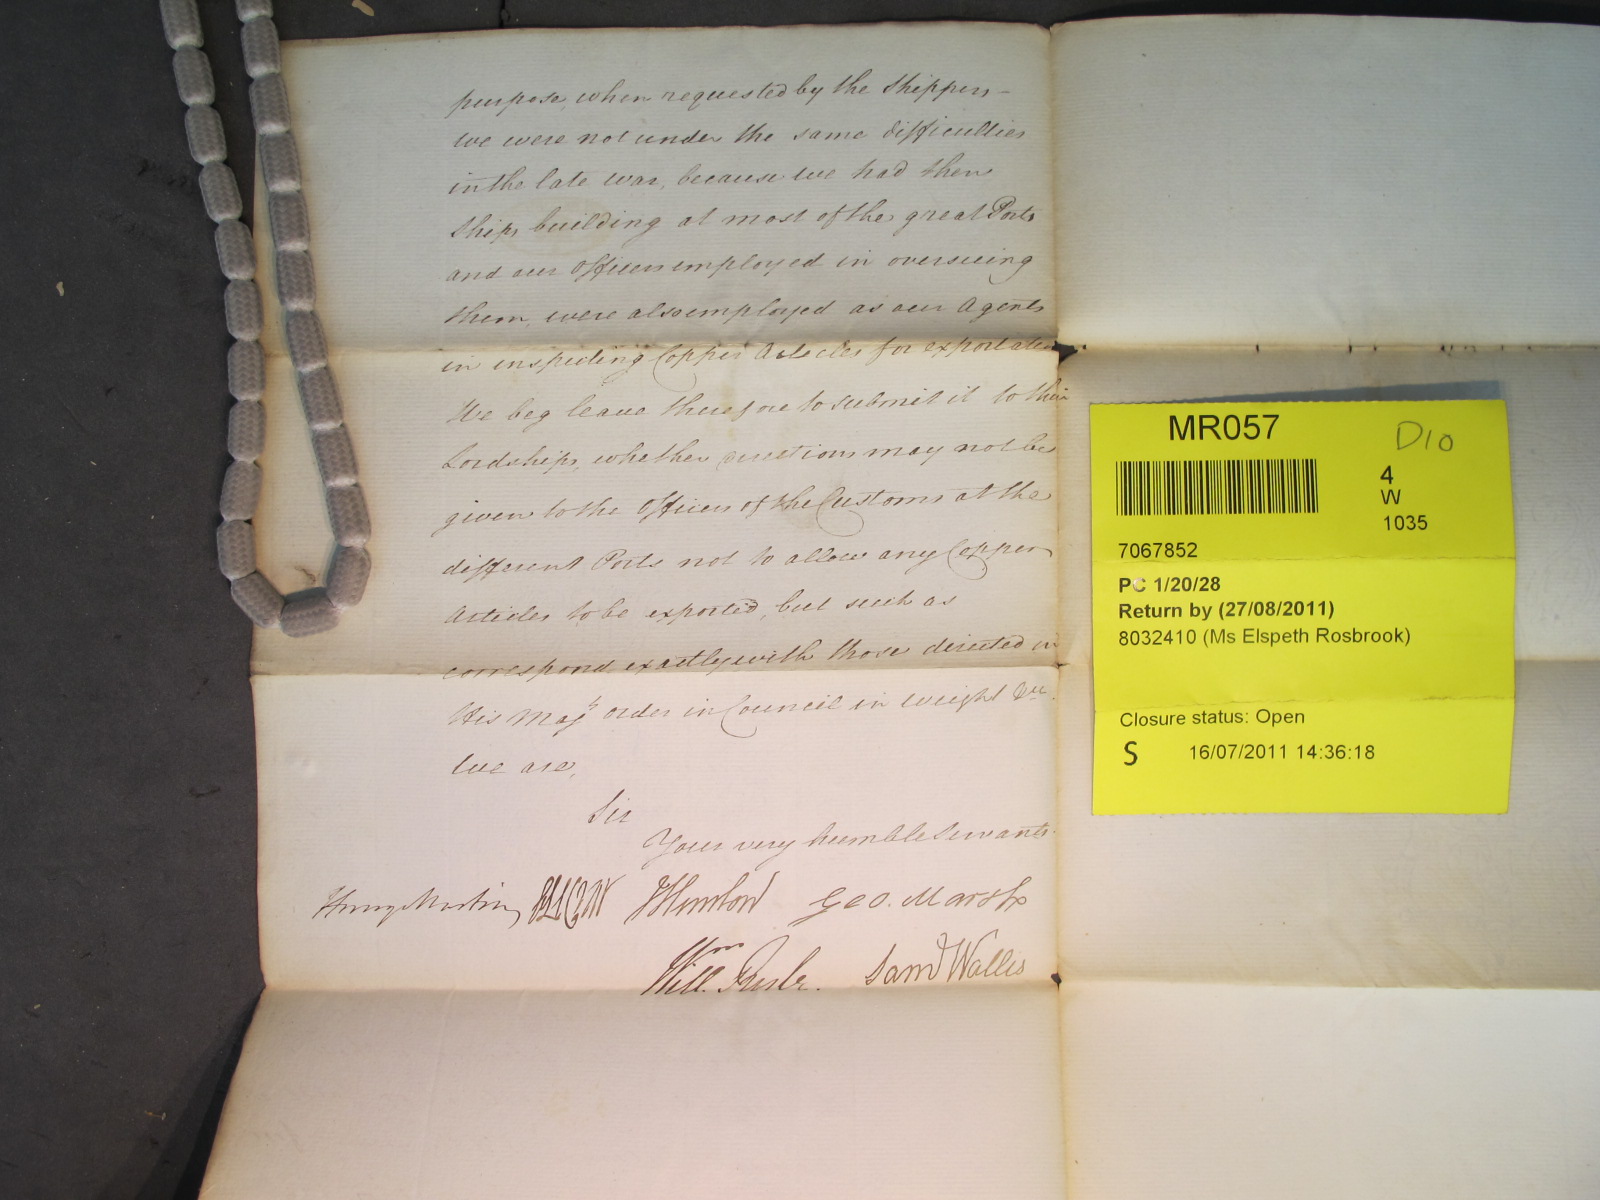 purpose, when requested by the Shippers –
we were not under the same difficulties
in the late war, because we had then
Ships building at most of the great Ports
and our Officers employed in overseeing
them, were also employed as our Agents
in inspecting Copper Articles for exportation
We beg leave therefore to submit it to their
Lordships, whether directions may not be
given to the Officers of the Customs at the
different Ports not to allow any Copper
Articles to be exported, but such as
correspond exactly with those directed in
His Maj^ty's order in Council in weight &c.
We are,
Sir
Your very humble Servants
Henry Martin Geo. Marsh
Wm Saml Wallis
MR057
D10
4
W
1035
7067852
PC 1/20/28
Return by (27/08/2011)
8032410 (Ms Elspeth Rosbrook)
Closure status: Open
S 16/07/2011 14:36:18